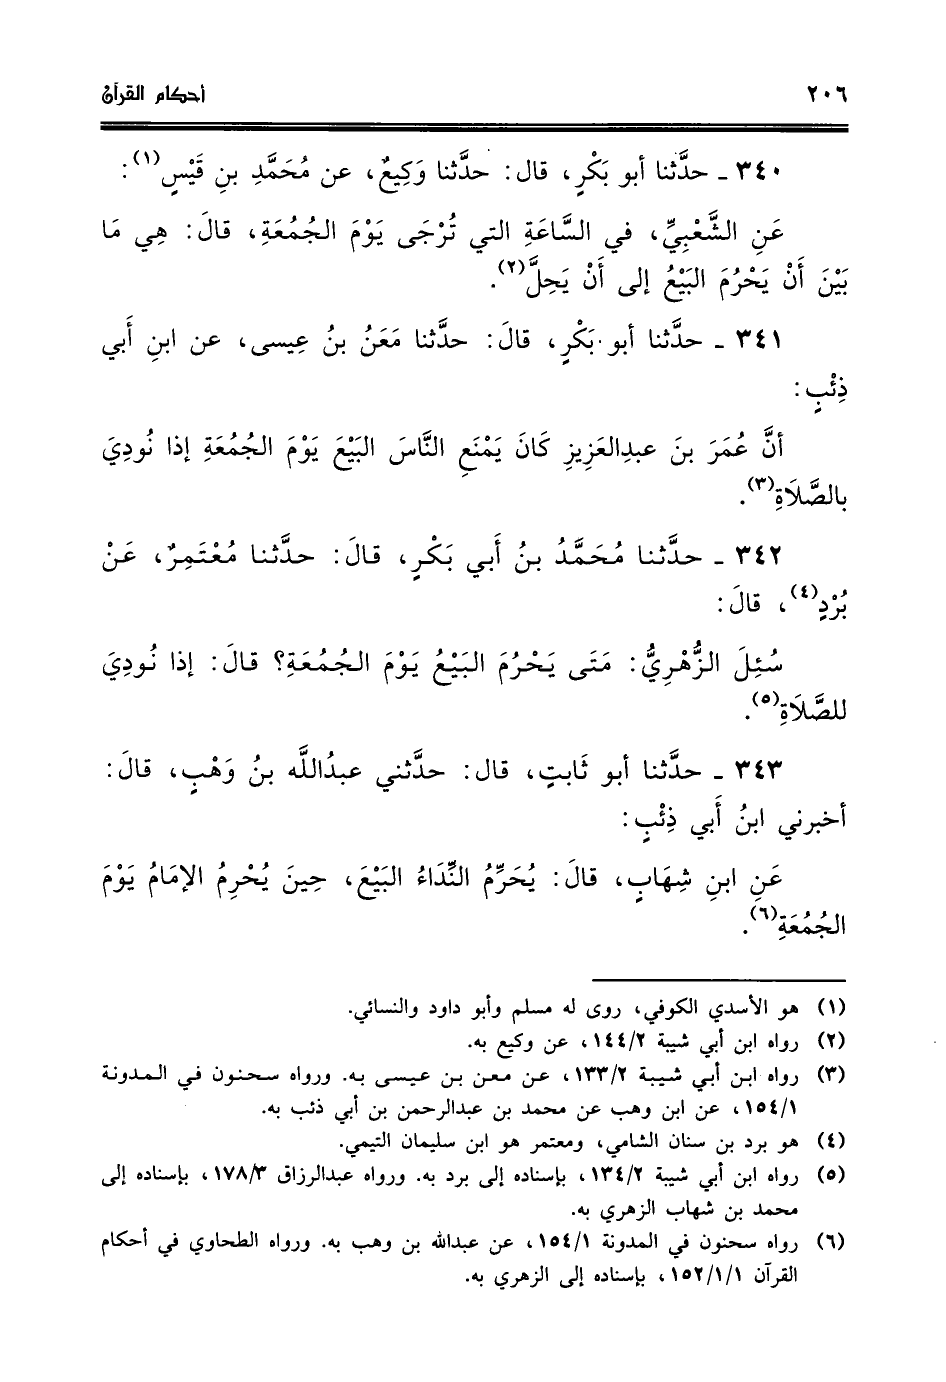 ٢٠٦ أحكام القرآن
٣٤٠ ـ حدَّثنا أبو بَكْرٍ، قال: حدَّثنا وَكِيعٌ، عن مُحَمَّدِ بنِ قَيْسٍ(١):
عَنِ الشَّعْبِيِّ، في السَّاعَةِ التي تُرْجَى يَوْمَ الجُمُعَةِ، قالَ: هِي مَا
بَيْنَ أَنْ يَحْرُمَ البَيْعُ إلى أَنْ يَحِلَّ(٢).
٣٤١ ـ حدَّثنا أبو بَكْرٍ، قالَ: حدَّثنا مَعَنُ بنُ عِيسى، عن ابنِ أَبي
ذِئْبٍ:
أنَّ عُمَرَ بنَ عبدِالعَزِيزِ كَانَ يَمْنَعِ النَّاسَ البَيْعَ يَوْمَ الجُمُعَةِ إذا نُودِيَ
بالصَّلَاةِ(٣).
٣٤٢ ـ حدَّثنا مُحَمَّدُ بنُ أَبي بَكْرٍ، قالَ: حدَّثنا مُعْتَمِرٌ، عَنْ
بُرْدٍ(٤)، قالَ:
سُئِلَ الزُّهْرِيُّ: مَتَى يَحْرُمَ البَيْعُ يَوْمَ الجُمُعَةِ؟ قالَ: إذا نُودِيَ
للصَّلَاةِ(٥).
٣٤٣ ـ حدَّثنا أبو ثَابتٍ، قال: حدَّثني عبدُاللَّه بنُ وَهْبٍ، قالَ:
أخبرني ابنُ أَبي ذِئْبٍ:
عَنِ ابنِ شِهَابٍ، قالَ: يُحَرِّمُ النِّدَاءُ البَيْعَ، حِينَ يُحْرِمُ الإمَامُ يَوْمَ
الجُمُعَةِ(٦).
(١) هو الأسدي الكوفي، روى له مسلم وأبو داود والنسائي.
(٢) رواه ابن أبي شيبة ١٤٤/٢، عن وكيع به.
(٣) رواه ابن أبي شيبة ١٣٣/٢، عن معن بن عيسى به. ورواه سحنون في المدونة
١٥٤/١، عن ابن وهب عن محمد بن عبدالرحمن بن أبي ذئب به.
(٤) هو برد بن سنان الشامي، ومعتمر هو ابن سليمان التيمي.
(٥) رواه ابن أبي شيبة ١٣٤/٢، بإسناده إلى برد به. ورواه عبدالرزاق ١٧٨/٣، بإسناده إلى
محمد بن شهاب الزهري به.
(٦) رواه سحنون في المدونة ١٥٤/١، عن عبدالله بن وهب به. ورواه الطحاوي في أحكام
القرآن ١٥٢/١/١، بإسناده إلى الزهري به.